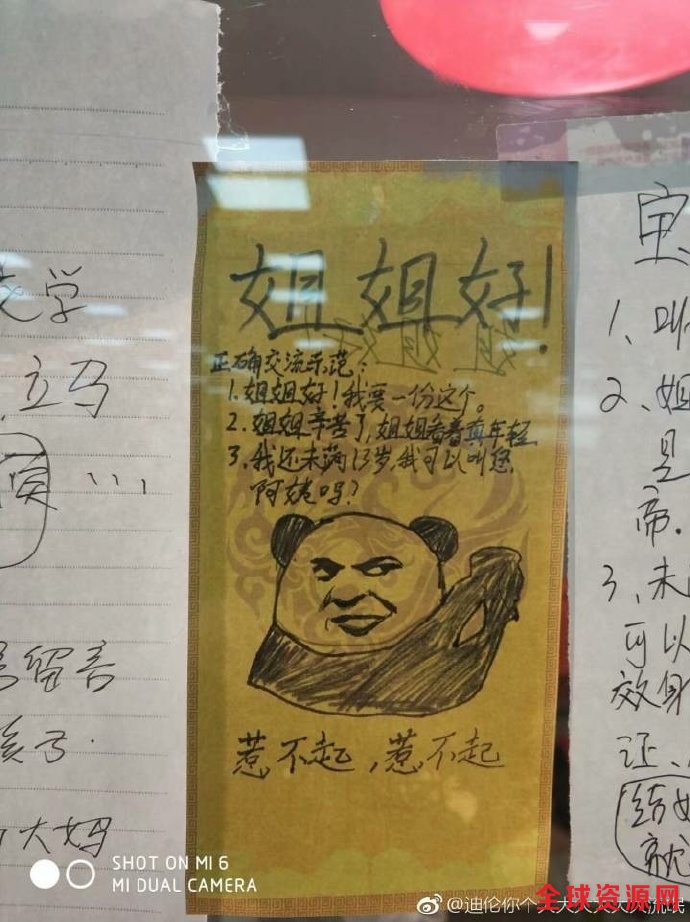 学
立马
…
留言
孩子.
大妈
姐姐好!
正确交流示范:
1.姐姐好!我要一份这个。
2.姐姐辛苦了,姐姐看着真年轻
3.我还未满13岁,我可以叫您
阿姨吗?
惹不起,惹不起
1、叫
2、姐
是
帝.
3、未
可以
效身
证、
结
就
SHOT ON MI 6
MI DUAL CAMERA
@迪伦你个
全球资源网